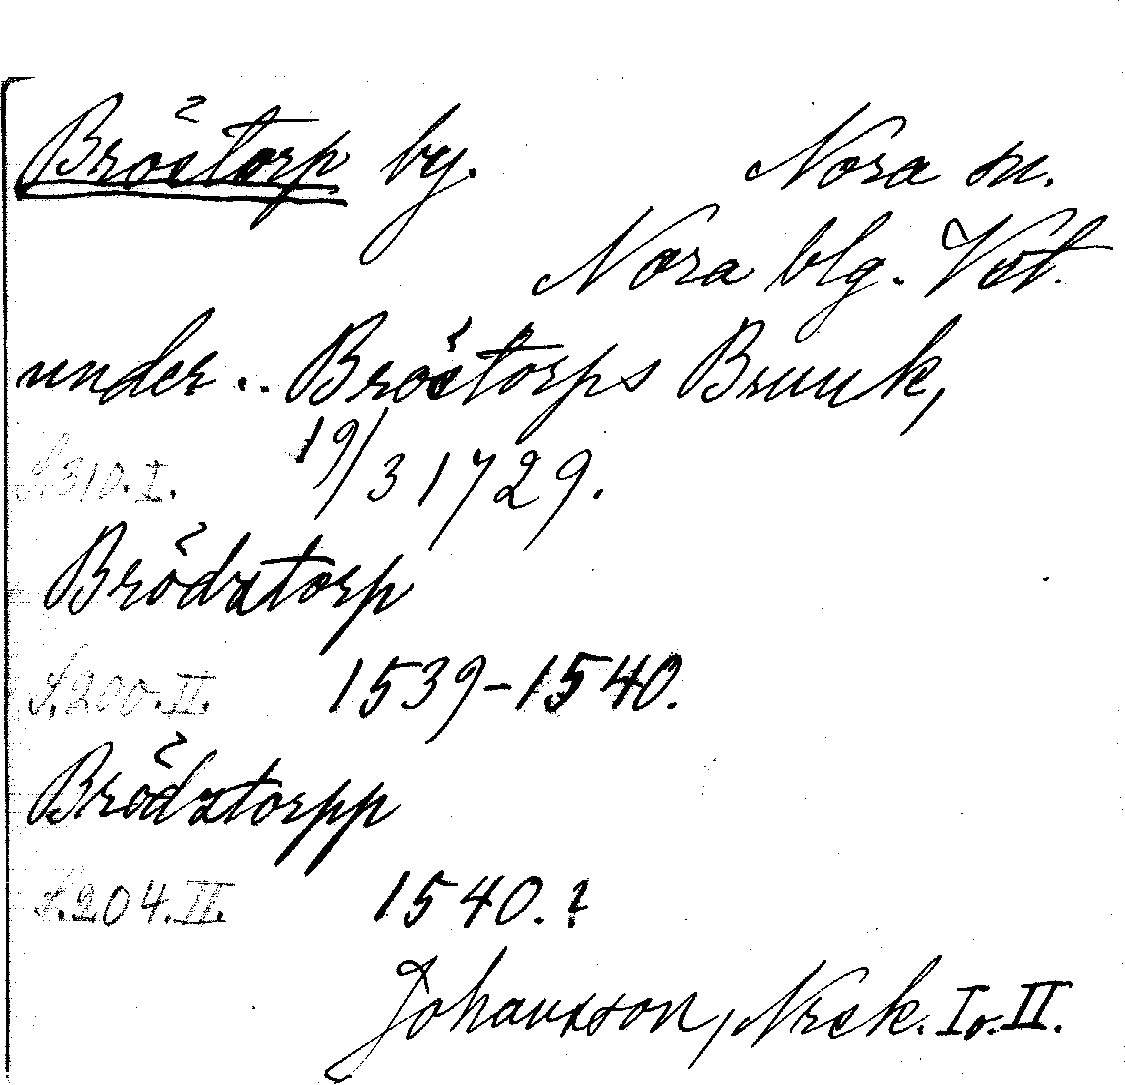 Bröstorp by. Nora sn.
Nora blg. Vstl.
under .. Bröstorps Bruuk,
S.310.I. 19/3 1729.
Brödztorp
S.200.II. 1539-1540.
Brödztorpp
S.204.II. 1540.?
Johansson, Norsk. I o. II.